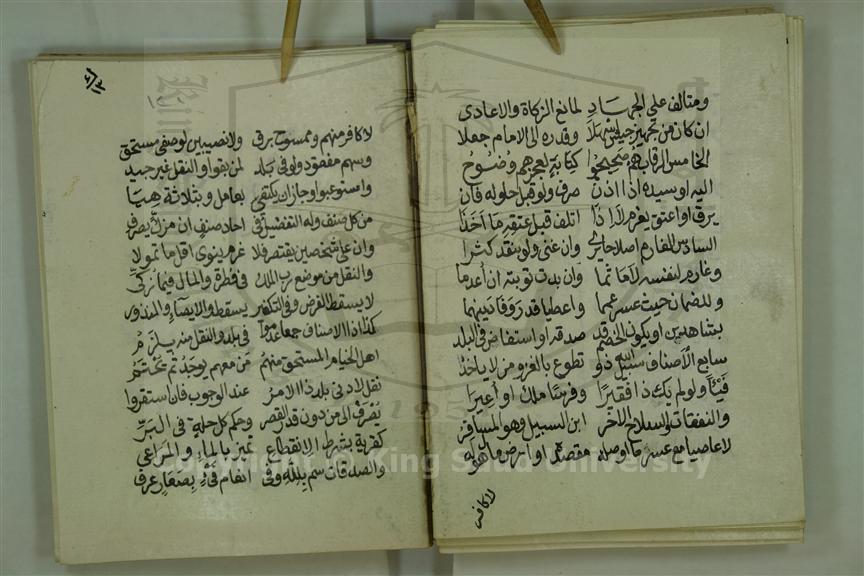 ومتالف على الجهاد لمانع الزكاة والاعادى
ان كان من تجهيز جيش اسهلا وقدره الى الامام جعلا
الخامس الرقاب هم صحيحو كتابة لعجزهم وضوح
اليه او سيده اذا اذن صرف ولو قبل حلوله فان
يرق او اعتق يغرم لا اذا اتلف قبل عتقه ما اخذا
السادس الغارم اصلاحا يرى وان غنى ولو بنقد كثرا
وغارم لنفسه لا آثما وان بدت توبته ان اعدما
وللضمان حيث عسر عما واعطيا قدر وفا دينهما
بشاهدين او يكون الخصم قد صدقه او استفاض فى البلد
سابع الاصناف سبيل الله ذو تطوع بالغزو من لا ياخذ
فيئا ولو لم يك ذا فقيرا وفرسا ملك او اعيرا
والنفقات والسلاح الاخر ابن السبيل وهو المسافر
لا عاصيا مع عسر ما اوصله مقصده او ارض مال هو له
لا كافر
لا كافر منهم وممسوح برق ولا نصيبين لوصفى مستحق
وسهم مفقود ولو فى بلد لمن بقوا والنقل غير جيد
واستوعبوا وجاز ان يكتفى بعامل وبثلاثة هيا
من كل صنف وله التفضيل فى احاد صنف ان من لا يصرف
وان على شخصين يقتصر فلا غرم ينوى اقل ما تمولا
والنقل من موضع رب الملك فى فطرة والمال فيما زكى
لا يسقط الفرض وفى التكفير يسقط والايصاء والمنذور
كذا اذا الاصناف جمعا عدموا فى بلد والنقل منه يلزم
اهل الخيام المستحق منهم من معهم يوجد ثم تحتم
نقل لادنى بلد ذا الامر عند الوجوب فان استقروا
يفرق الى من دون قدر القصر وحكم كل حلة فى البر
كقرية بشرط الانقطاع تميز بالماء والمراعى
والصدقات سم بلله وفى انعام فىء بصغار عرف